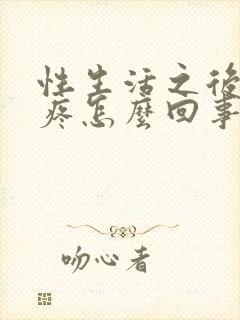 性生活之後
疼怎麼回事
吻心者